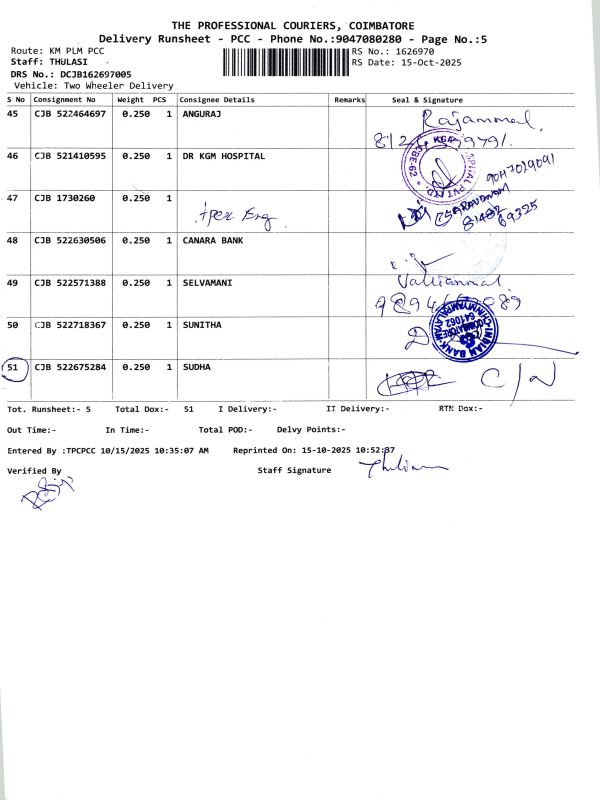 THE PROFESSIONAL COURIERS, COIMBATORE
Delivery Runsheet - PCC - Phone No.:9047080280 - Page No.:5
Route: KM PLM PCC
RS No.: 1626970
Staff: THULASI
RS Date: 15-Oct-2025
DRS No.: DCJB162697005
Vehicle: Two Wheeler Delivery
S No Consignment No Weight PCS Consignee Details Remarks Seal & Signature
45 CJB 522464697 0.250 1 ANGURAJ Rajammal
46 CJB 521410595 0.250 1 DR KGM HOSPITAL
9047029091
47 CJB 1730260 0.250 1
SARAVANAN
69325
48 CJB 522630506 0.250 1 CANARA BANK
49 CJB 522571388 0.250 1 SELVAMANI Valliammal
50 CJB 522718367 0.250 1 SUNITHA
INDIAN BANK
641062
51 CJB 522675284 0.250 1 SUDHA C/N
Tot. Runsheet:- 5 Total Dox:- 51 I Delivery:- II Delivery:- RTN Dox:-
Out Time:- In Time:- Total POD:- Delvy Points:-
Entered By :TPCPCC 10/15/2025 10:35:07 AM Reprinted On: 15-10-2025 10:52:37
Verified By Staff Signature